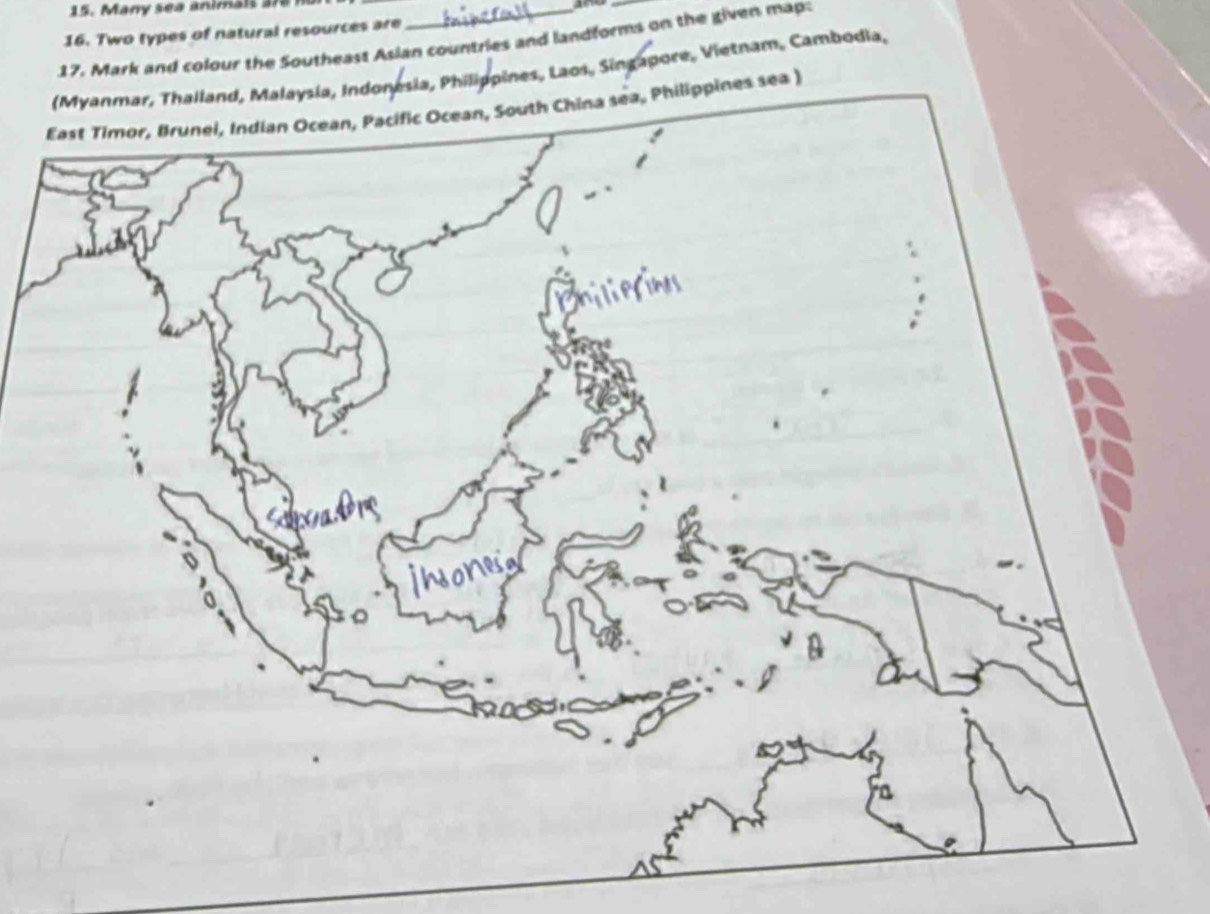 15. Many sea animals are
16. Two types of natural resources are minerals and
17. Mark and colour the Southeast Asian countries and landforms on the given map:
(Myanmar, Thailand, Malaysia, Indonesia, Philippines, Laos, Singapore, Vietnam, Cambodia,
East Timor, Brunei, Indian Ocean, Pacific Ocean, South China sea, Philippines sea )